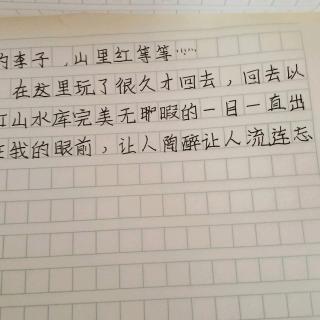 的李子,山里红等等……
在这里玩了很久才回去,回去以
红山水库完美无瑕的一目一直出
在我的眼前,让人陶醉让人流连忘